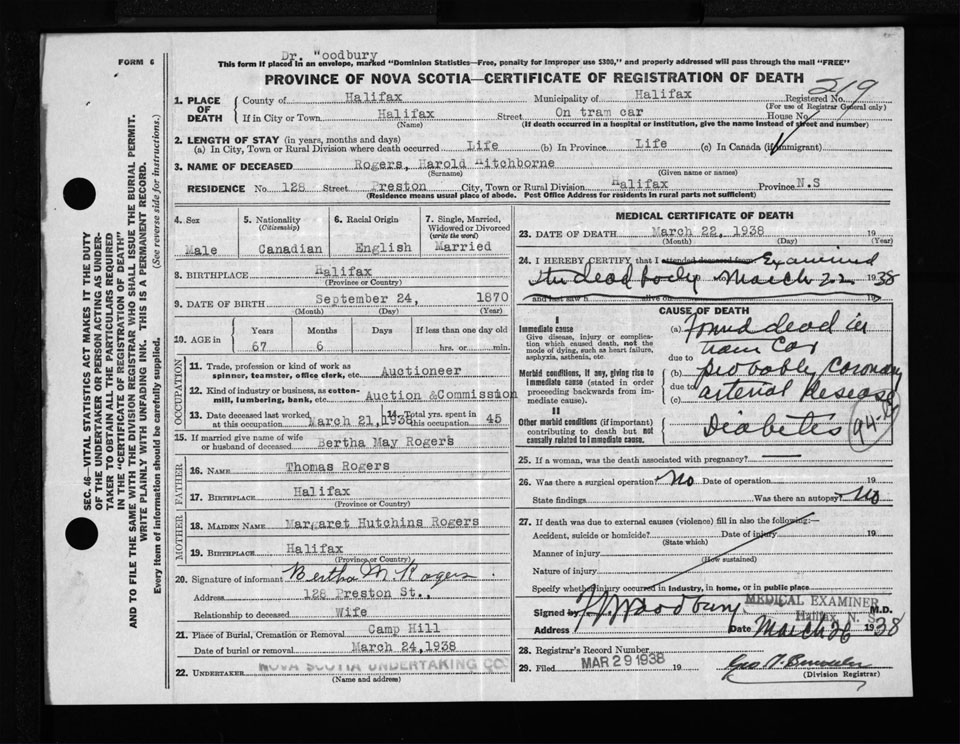 Dr. Woodbury
FORM 6
This form if placed in an envelope, marked "Dominion Statistics—Free, penalty for improper use $300," and properly addressed will pass through the mail "FREE"
PROVINCE OF NOVA SCOTIA—CERTIFICATE OF REGISTRATION OF DEATH
219
1. PLACE OF DEATH
County of Halifax Municipality of Halifax Registered No.
(For use of Registrar General only)
If in City or Town Halifax Street On tram car House No.
(Name) (If death occurred in a hospital or institution, give the name instead of street and number)
2. LENGTH OF STAY (in years, months and days)
(a) In City, Town or Rural Division where death occurred Life (b) In Province Life (c) In Canada (if immigrant)
3. NAME OF DECEASED Rogers, Harold Hitchborne
(Surname) (Given name or names)
RESIDENCE No. 128 Street Preston City, Town or Rural Division Halifax Province N.S
(Residence means usual place of abode. Post Office Address for residents in rural parts not sufficient)
4. Sex
Male
5. Nationality
(Citizenship)
Canadian
6. Racial Origin
English
7. Single, Married, Widowed or Divorced
(write the word)
Married
8. BIRTHPLACE Halifax
(Province or Country)
9. DATE OF BIRTH September 24, 1870
(Month) (Day) (Year)
10. AGE in
Years Months Days If less than one day old
67 6 hrs. or min.
OCCUPATION
11. Trade, profession or kind of work as spinner, teamster, office clerk, etc. Auctioneer
12. Kind of industry or business, as cotton-mill, lumbering, bank, etc. Auction &Commission
13. Date deceased last worked at this occupation March 21,1938
14. Total yrs. spent in this occupation 45
15. If married give name of wife or husband of deceased Bertha May Rogers
FATHER
16. NAME Thomas Rogers
17. BIRTHPLACE Halifax
(Province or Country)
MOTHER
18. MAIDEN NAME Margaret Hutchins Rogers
19. BIRTHPLACE Halifax
(Province or Country)
20. Signature of informant Bertha M. Rogers
Address 128 Preston St.,
Relationship to deceased Wife
21. Place of Burial, Cremation or Removal Camp Hill
Date of burial or removal March 24,1938
22. UNDERTAKER NOVA SCOTIA UNDERTAKING CO.
(Name and address)
MEDICAL CERTIFICATE OF DEATH
23. DATE OF DEATH March 22, 1938 19
(Month) (Day) (Year)
24. I HEREBY CERTIFY, that I attended deceased from Examined
the dead body March 22 1938
and last saw h alive on 19
I
Immediate cause
Give disease, injury or complication which caused death, not the mode of dying, such as heart failure, asphyxia, asthenia, etc.
Morbid conditions, if any, giving rise to immediate cause (stated in order proceeding backwards from immediate cause).
II
Other morbid conditions (if important) contributing to death but not causally related to immediate cause.
CAUSE OF DEATH
(a) Found dead in
tram car
due to
(b) probably coronary
due to
(c) arterial disease
Diabetes
25. If a woman, was the death associated with pregnancy?
26. Was there a surgical operation? No Date of operation 19
State findings Was there an autopsy? No
27. If death was due to external causes (violence) fill in also the following:—
Accident, suicide or homicide? Date of injury 19
(State which)
Manner of injury
(How sustained)
Nature of injury
Specify whether injury occurred in industry, in home, or in public place
MEDICAL EXAMINER
Halifax, N. S.
Signed by Woodbury M.D.
Address Date March 26 1938
28. Registrar's Record Number
29. Filed MAR 29 1938 19
(Division Registrar)
SEC. 46—VITAL STATISTICS ACT MAKES IT THE DUTY OF THE UNDERTAKER OR PERSON ACTING AS UNDERTAKER TO OBTAIN ALL THE PARTICULARS REQUIRED IN THE "CERTIFICATE OF REGISTRATION OF DEATH"
AND TO FILE THE SAME WITH THE DIVISION REGISTRAR WHO SHALL ISSUE THE BURIAL PERMIT.
WRITE PLAINLY WITH UNFADING INK. THIS IS A PERMANENT RECORD.
Every item of information should be carefully supplied. (See reverse side for instructions.)